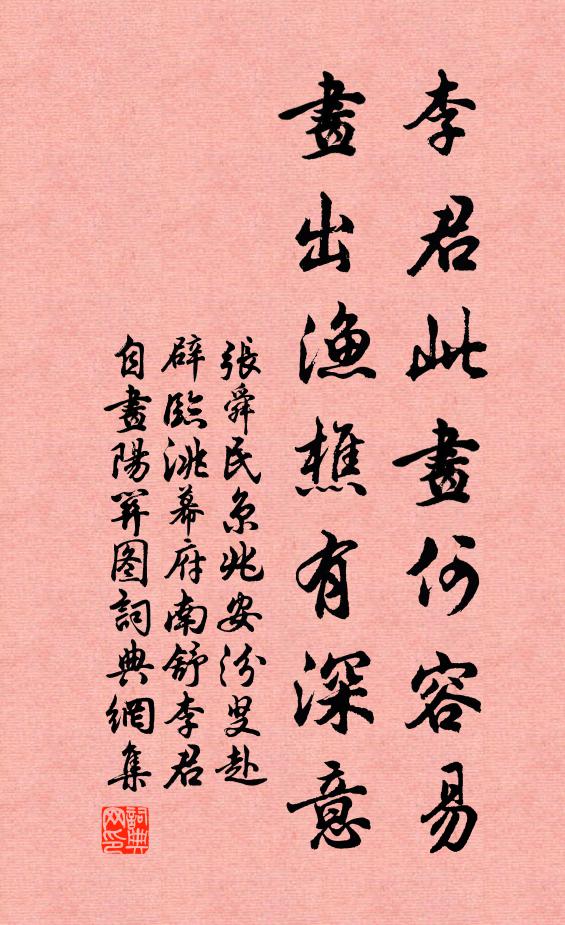 李君此畫何容易
畫出漁樵有深意
張舜民京兆安汾叟赴
辟臨洮幕府南舒李君
自畫陽関图詞典網集
詞典网印